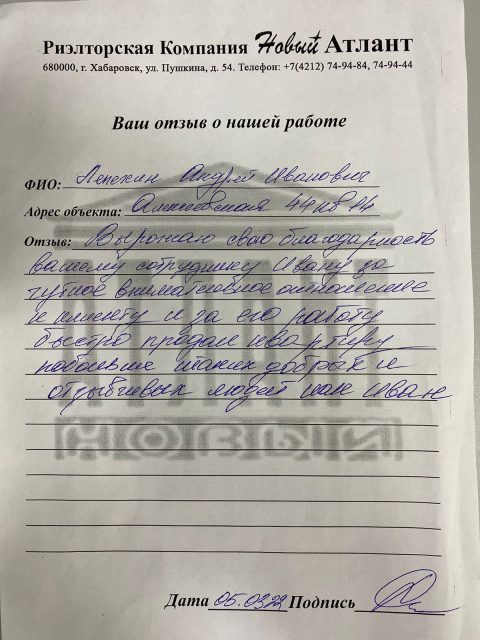 Риэлторская Компания Новый Атлант
680000, г. Хабаровск, ул. Пушкина, д. 54. Телефон: +7(4212) 74-94-84, 74-94-44
Ваш отзыв о нашей работе
ФИО: Лепехин Андрей Иванович
Адрес объекта: 44 кв 14
Отзыв: Выражаю свою благодарность
вашему сотруднику Ивану за
чуткое внимательное отношение
к клиенту и за его работу
быстро продал квартиру
побольше таких добрых и
отзывчивых людей как Иван
АТЛАНТ
НОВЫЙ
Дата 05.03.22 Подпись